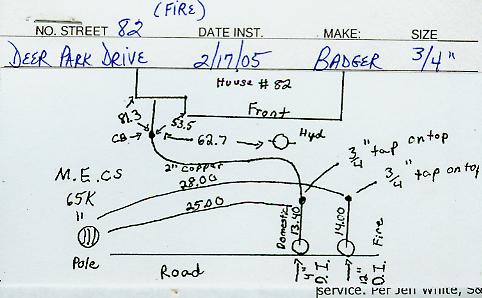 (FIRE)
NO. STREET 82 DATE INST. MAKE: SIZE
DEER PARK DRIVE 2/17/05 BADGER 3/4"
House # 82
Front
81.3
53.5
CB
62.7
Hyd
3/4" tap on top
3/4" tap on top
2" copper
M.E.CS
65K
28.00
25.00
Domestic
13.40
14.00
Fire
Pole
Road
4" D.I.
12" D.I.
service. Per Jeff White, S&